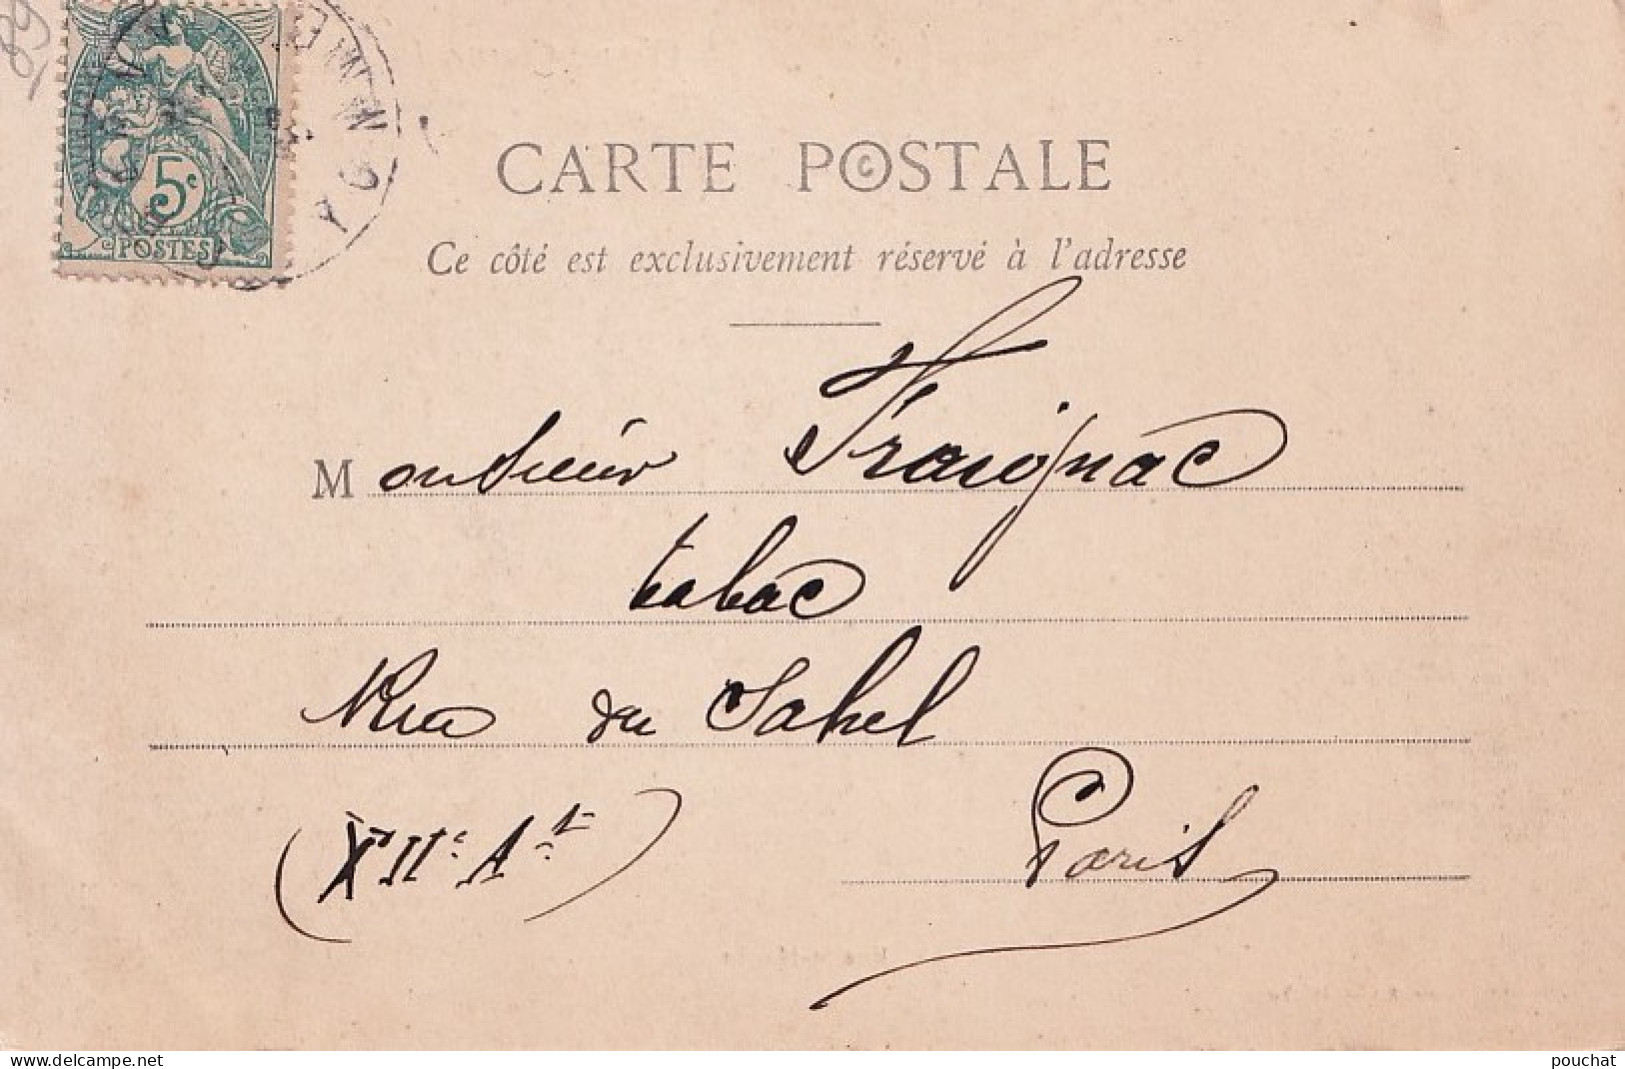 89
5c
POSTES
CARTE POSTALE
Ce côté est exclusivement réservé à l'adresse
Monsieur Fraignac
tabac
Rue du Sahel
(XIIe At)
Paris
delcampe.net
pouchat